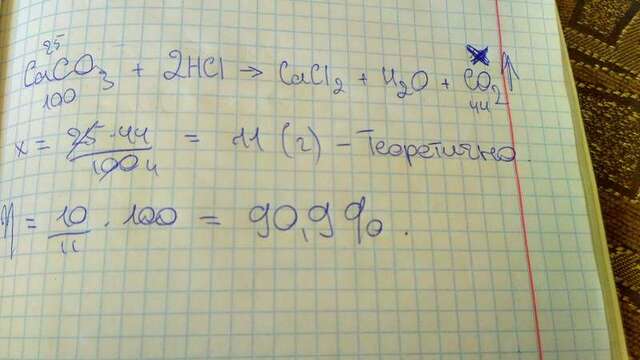 25 x
CaCO3 + 2HCl → CaCl2 + H2O + CO2↑
100 44
x = 25·44 / 100 4 = 11 (г) – Теоретично.
η = 10 / 11 · 100 = 90,9%.